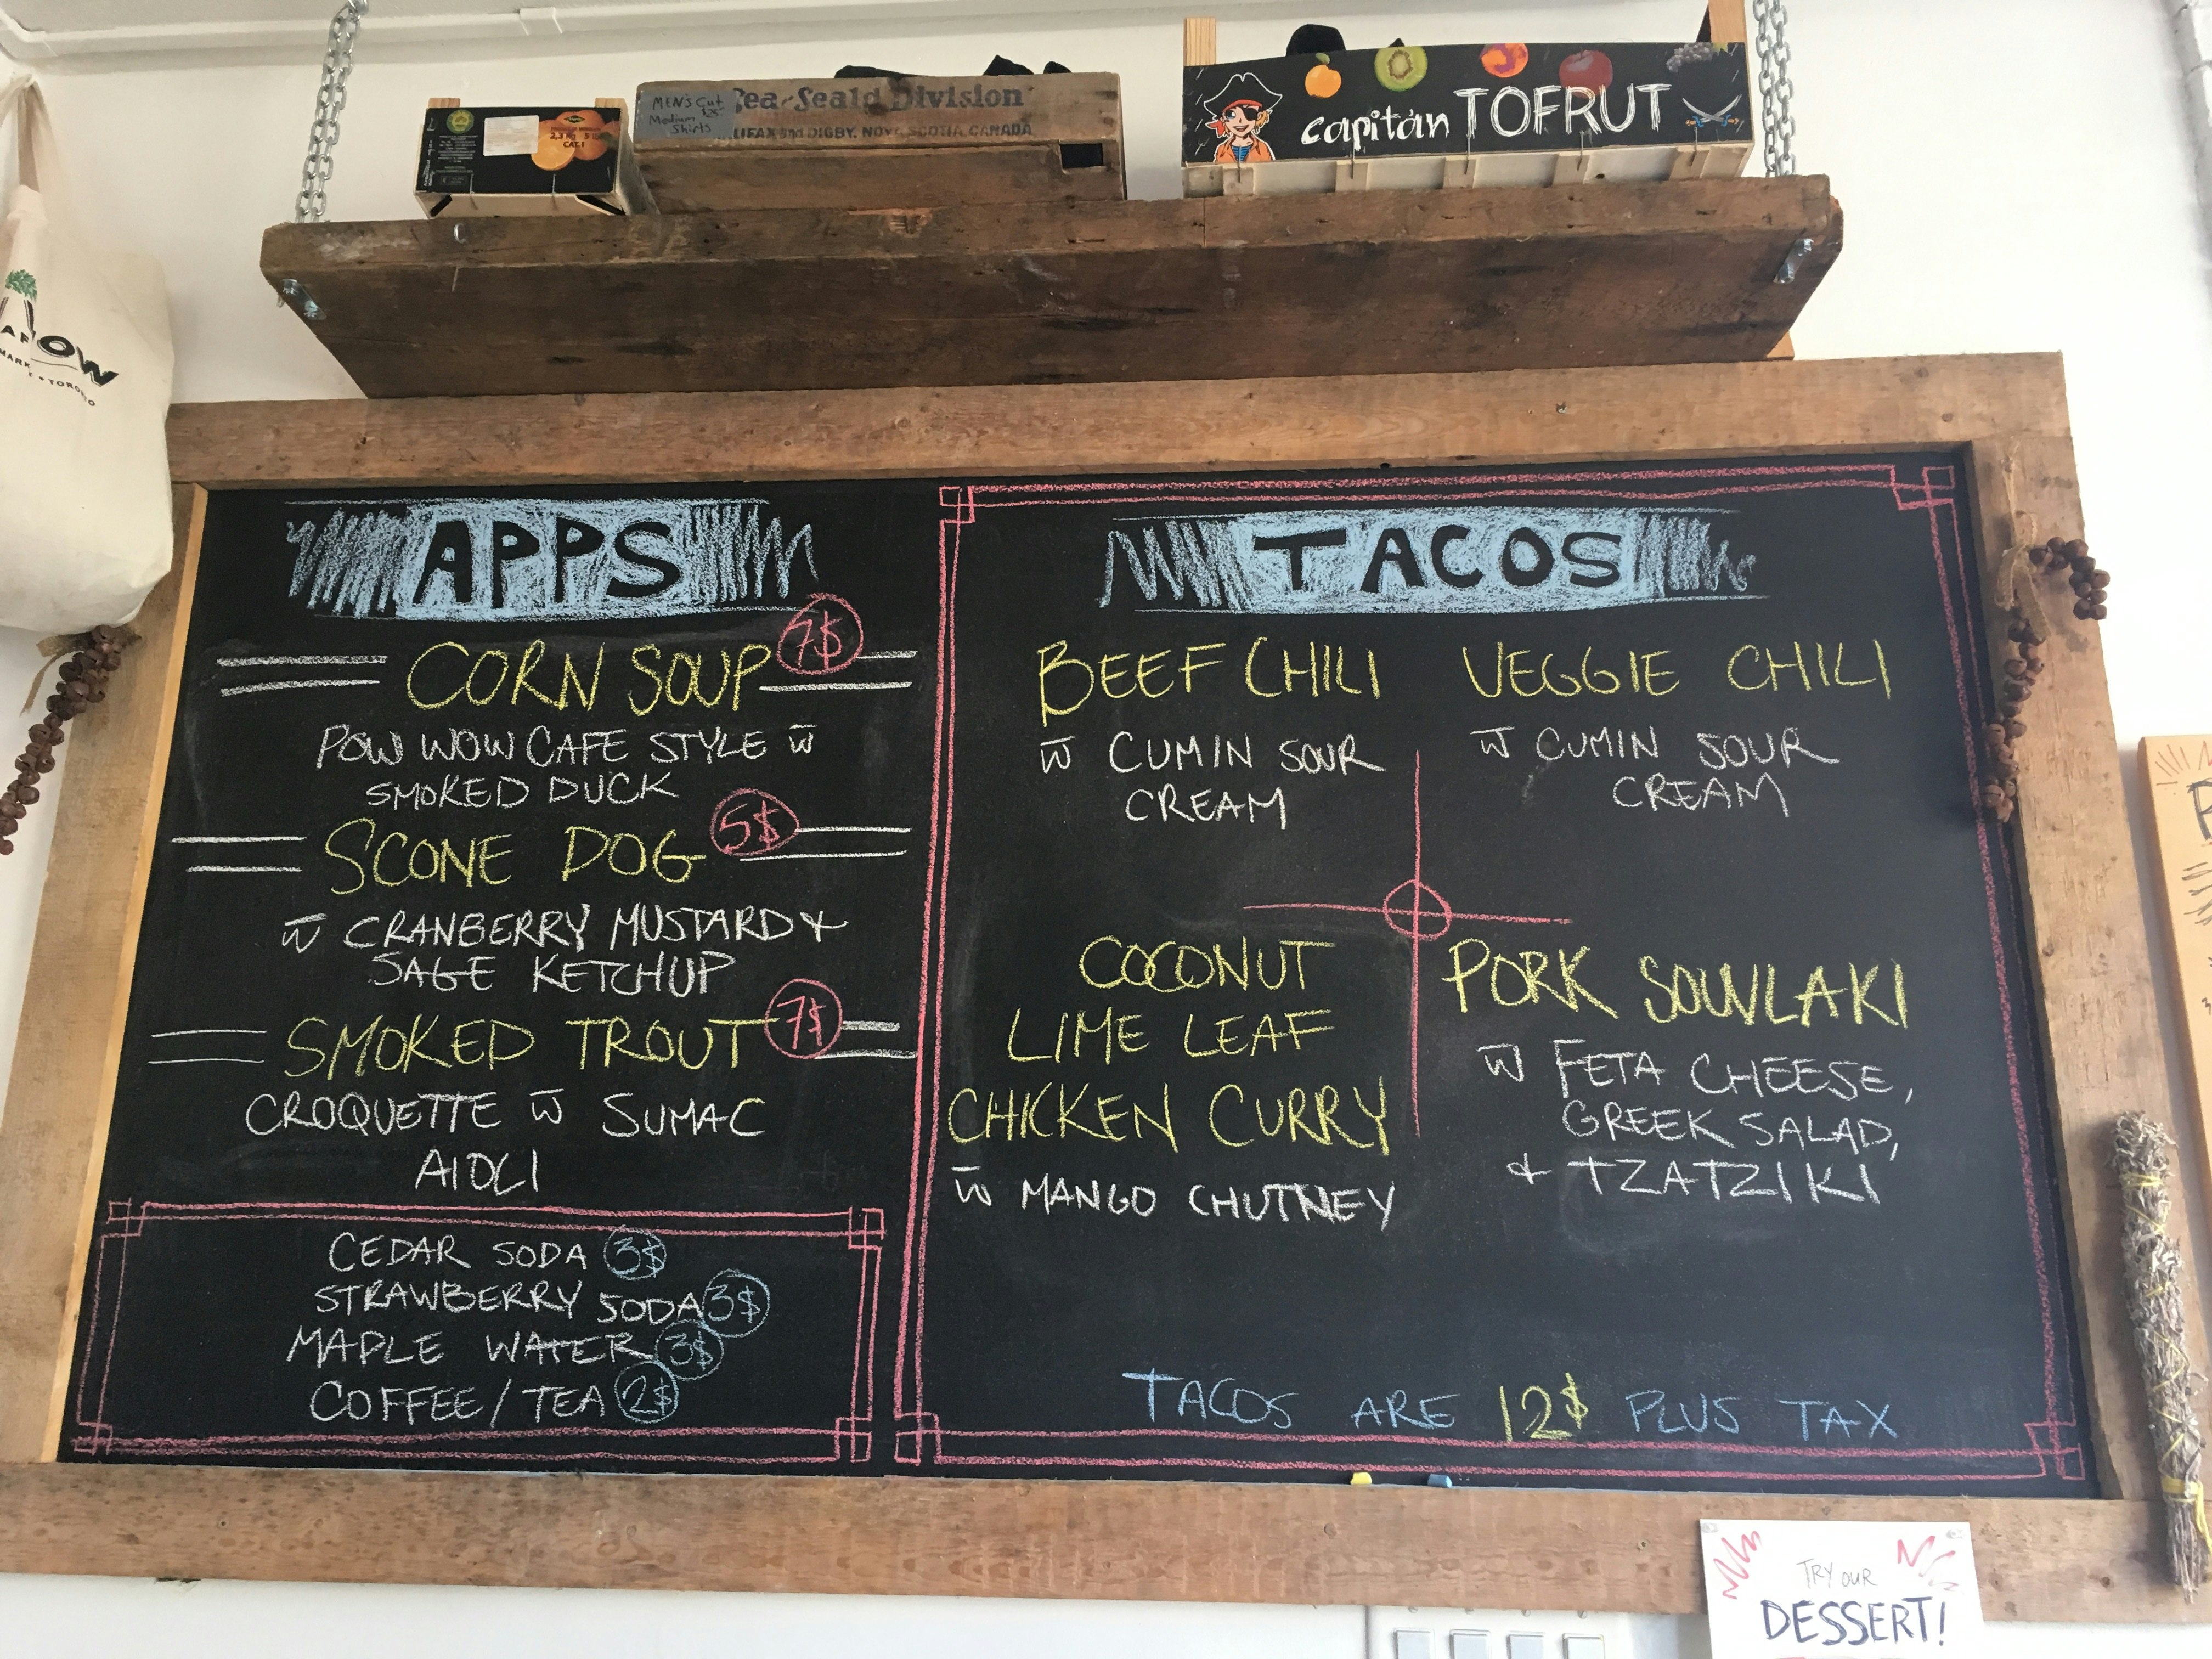 MEN'S CUT
Medium
Shirts
Sea-Seald Division
HALIFAX and DIGBY, NOVA SCOTIA, CANADA
2,3 Kg
CAT. I
capitán TOFRUT
OW
MARK
TORO
APPS
CORN SOUP 7$
POW WOW CAFE STYLE W
SMOKED DUCK
SCONE DOG 5$
W CRANBERRY MUSTARD &
SAGE KETCHUP
SMOKED TROUT 7$
CROQUETTE W SUMAC
AIOLI
CEDAR SODA 3$
STRAWBERRY SODA 3$
MAPLE WATER 3$
COFFEE/TEA 2$
TACOS
BEEF CHILI
W CUMIN SOUR
CREAM
VEGGIE CHILI
W CUMIN SOUR
CREAM
COCONUT
LIME LEAF
CHICKEN CURRY
W MANGO CHUTNEY
PORK SOUVLAKI
W FETA CHEESE,
GREEK SALAD,
& TZATZIKI
TACOS ARE 12$ PLUS TAX
TRY OUR
DESSERT!